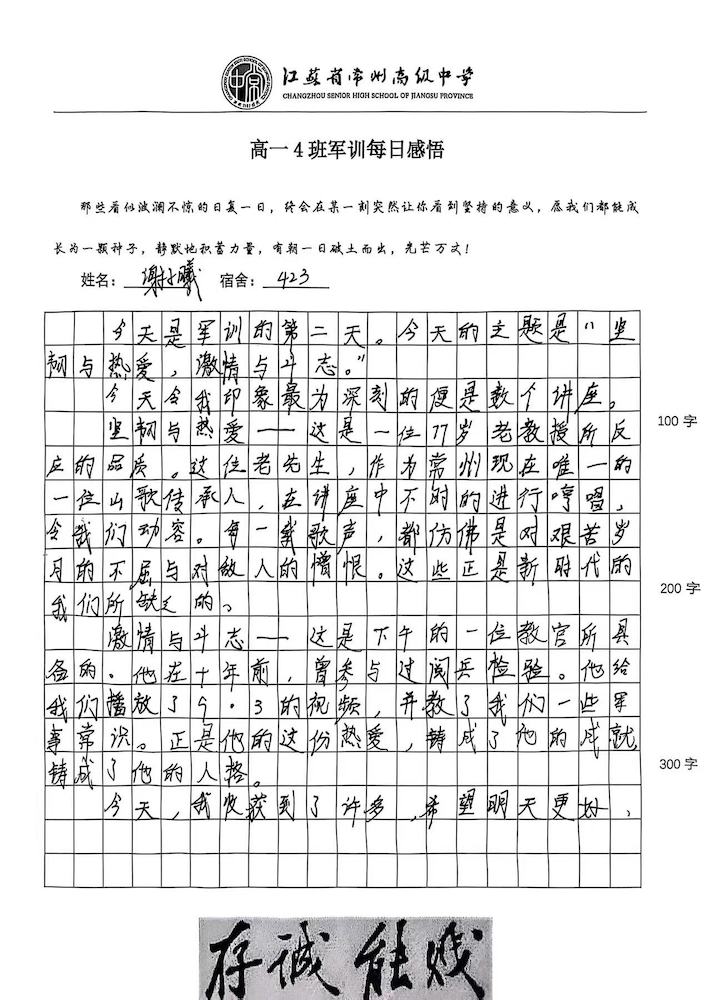 江苏省常州高级中学
CHANGZHOU SENIOR HIGH SCHOOL OF JIANGSU PROVINCE
高一4班军训每日感悟
那些看似波澜不惊的日复一日，终会在某一刻突然让你看到坚持的意义，愿我们都能成
长为一颗种子，静默地积蓄力量，有朝一日破土而出，光芒万丈！
姓名： 宿舍：423
今天是军训的第二天。今天的主题是“坚
韧与热爱，激情与斗志。”
今天令我印象最为深刻的便是数个讲座。
坚韧与热爱——这是一位77岁老教授所反
100字
应的品质。这位老先生，作为常州现在唯一的
一位山歌传承人，在讲座中不时的进行哼唱，
令我们动容。每一载歌声，都仿佛是对艰苦岁
月的不屈与对敌人的憎恨。这些正是新时代的
200字
我们所缺乏的。
激情与斗志——这是下午的一位教官所具
备的。他在十年前，曾参与过阅兵检验。他给
我们播放了9·3的视频，并教了我们一些军
事常识。正是他的这份热爱，铸成了他的成就，
300字
铸成了他的人格。
今天，我收获到了许多，希望明天更好。
存诚能贱